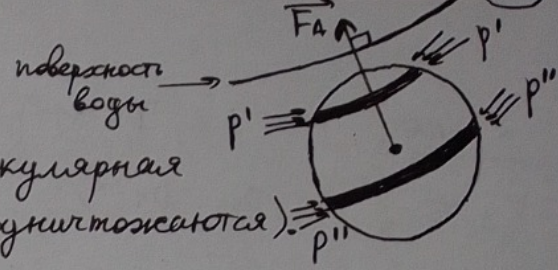 F_A
p'
поверхность
воды
p''
p'
кулярная
уничтожаются).
p''